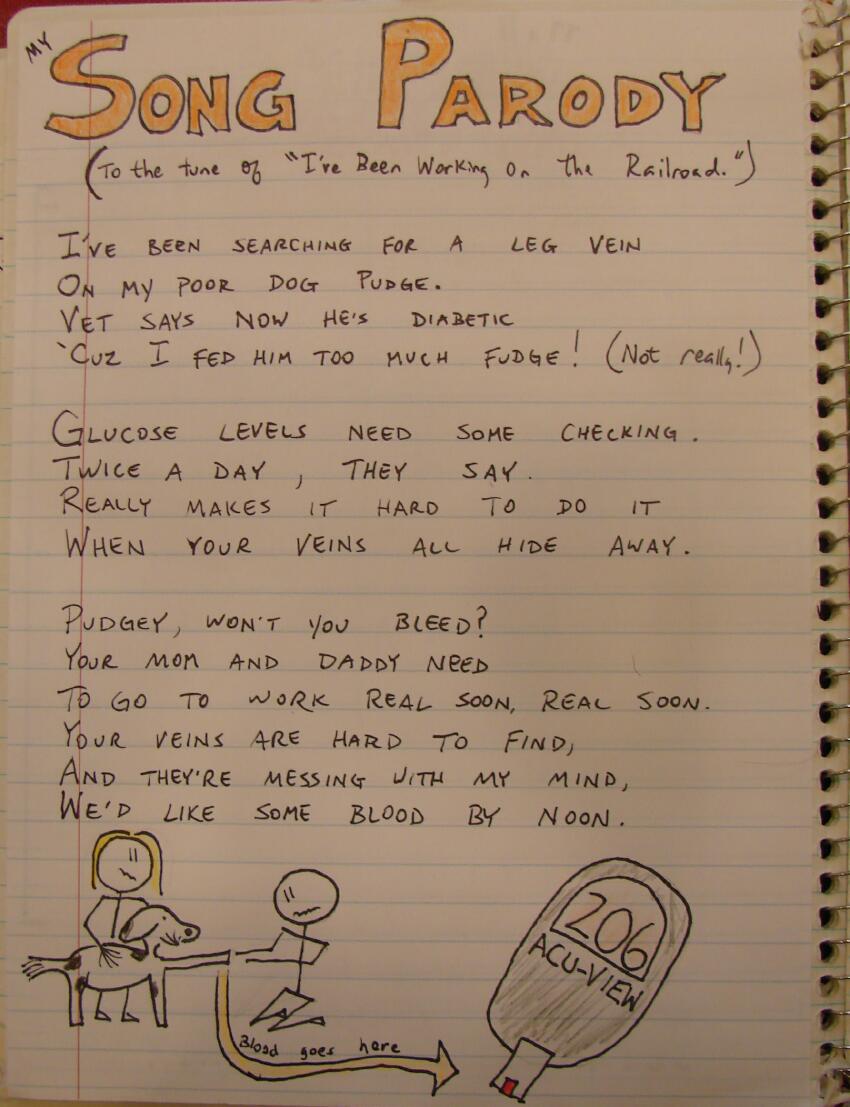 MY
SONG PARODY
(To the tune of "I've Been Working On the Railroad.")
I'VE BEEN SEARCHING FOR A LEG VEIN
ON MY POOR DOG PUDGE.
VET SAYS NOW HE'S DIABETIC
'CUZ I FED HIM TOO MUCH FUDGE! (Not really!)
GLUCOSE LEVELS NEED SOME CHECKING.
TWICE A DAY, THEY SAY.
REALLY MAKES IT HARD TO DO IT
WHEN YOUR VEINS ALL HIDE AWAY.
PUDGEY, WON'T YOU BLEED?
YOUR MOM AND DADDY NEED
TO GO TO WORK REAL SOON, REAL SOON.
YOUR VEINS ARE HARD TO FIND,
AND THEY'RE MESSING WITH MY MIND,
WE'D LIKE SOME BLOOD BY NOON.
206
ACU-VIEW
Blood goes here